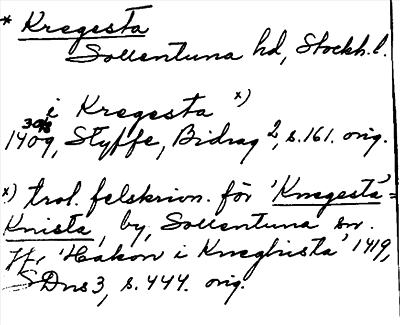 * Kregesta
Sollentuna hd, Stockh. l.
i Kregesta x)
30/8
1409, Styffe, Bidrag 2, s. 161. orig.
x) trol. felskrivn. för 'Knegesta' =
Knista, by, Sollentuna sn.
Jfr 'Hakon i Kneghista' 1419,
SDns 3, s. 444. orig.